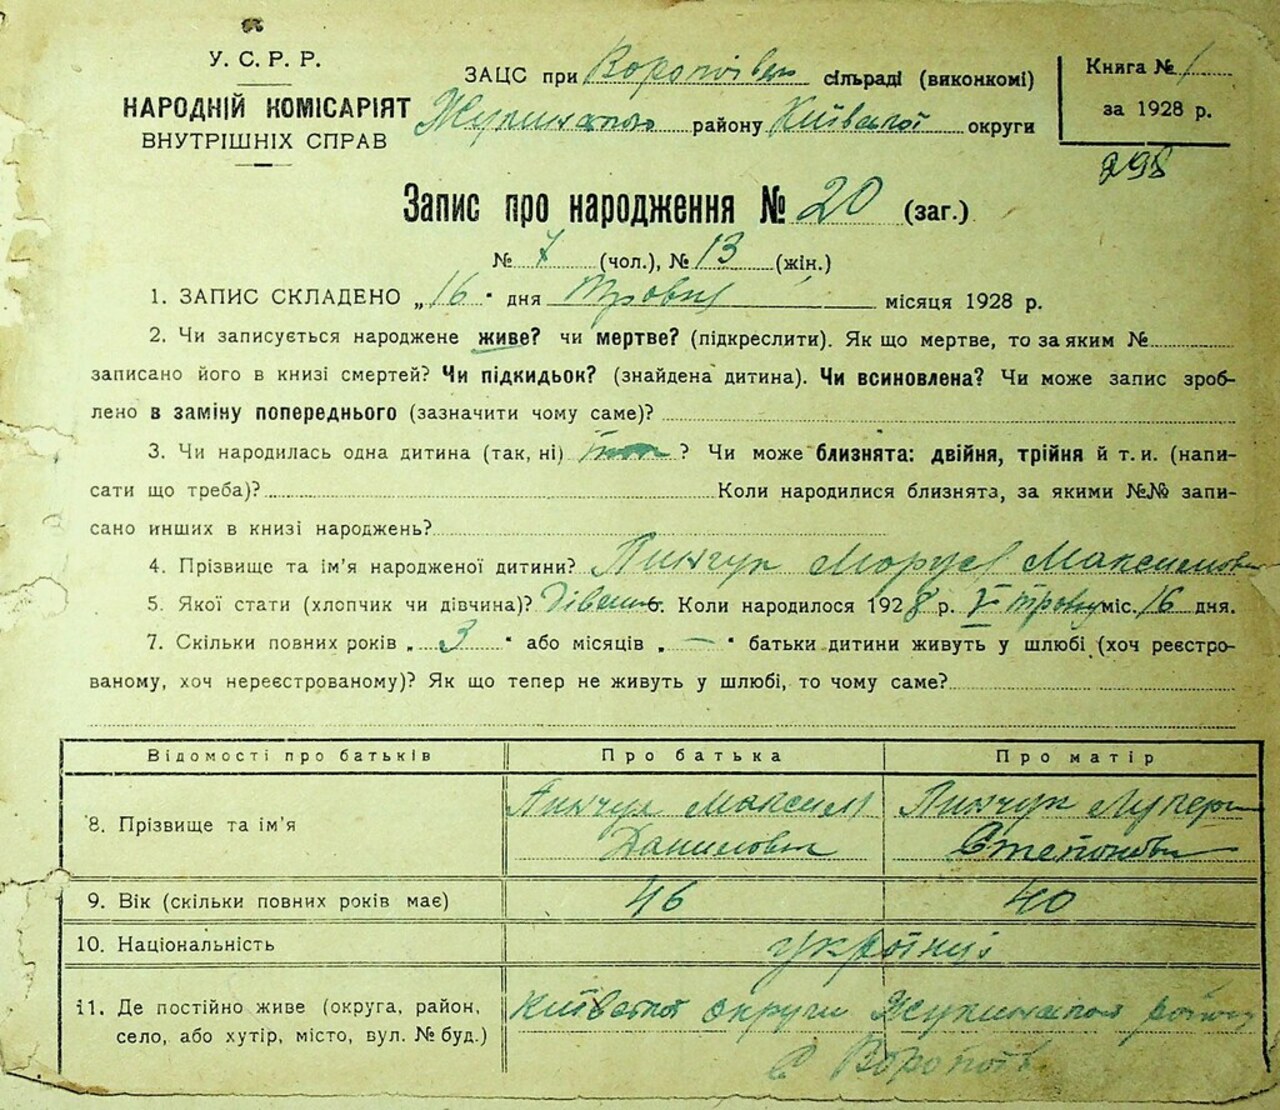 У. С. Р. Р.
НАРОДНІЙ КОМІСАРІЯТ
ВНУТРІШНІХ СПРАВ
ЗАЦС при сільраді (виконкомі)
району Київської округи
Книга № 1
за 1928 р.
298
Запис про народження № 20 (заг.)
№ 7 (чол.), № 13 (жін.)
1. ЗАПИС СКЛАДЕНО „16" дня Травня місяця 1928 р.
2. Чи записується народжене живе? чи мертве? (підкреслити). Як що мертве, то за яким №
записано його в книзі смертей? Чи підкидьок? (знайдена дитина). Чи всиновлена? Чи може запис зроб-
лено в заміну попереднього (зазначити чому саме)?
3. Чи народилась одна дитина (так, ні) ? Чи може близнята: двійня, трійня й т. и. (напи-
сати що треба)? Коли народилися близнята, за якими №№ запи-
сано инших в книзі народжень?
4. Прізвище та ім'я народженої дитини? Пинчук Маруся Максимовн
5. Якої стати (хлопчик чи дівчина)? Коли народилося 1928 р. V травня міс. 16 дня.
7. Скільки повних років „3" або місяців „—" батьки дитини живуть у шлюбі (хоч реєстро-
ваному, хоч нереєстрованому)? Як що тепер не живуть у шлюбі, то чому саме?
Відомості про батьків Про батька Про матір
8. Прізвище та ім'я Пинчук Максим Пинчук
Данилович Степановн
9. Вік (скільки повних років має) 46 40
10. Національність українці
11. Де постійно живе (округа, район, Київської округи району
село, або хутір, місто, вул. № буд.) с